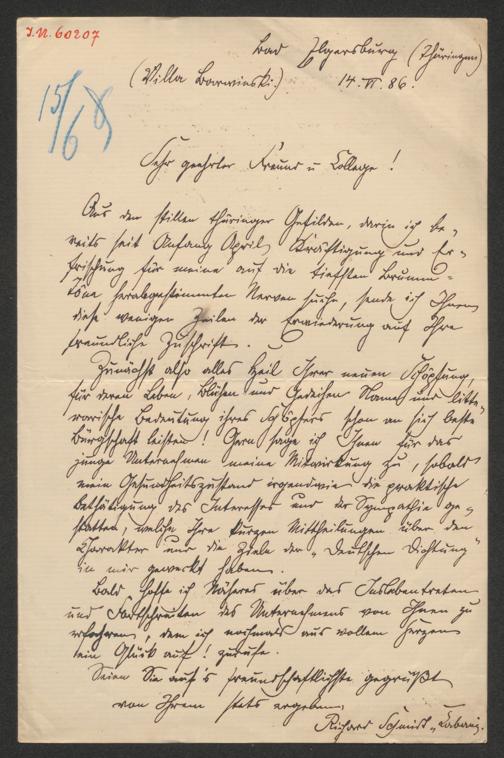 J.N. 60207
15/6 8
Bad Elgersburg (Thüringen)
(Villa Barwinski.) 14. VI. 86.
Sehr geehrter Freund u College!
Aus den stillen thüringer Gefilden, darin ich be-
reits seit Anfang April Kräftigung und Er-
frischung für meine auf die tiefsten Brumm-
töne herabgestimmten Nerven suche, sende ich Ihnen
diese wenigen Zeilen der Erwiederung auf Ihre
freundliche Zuschrift.
Zunächst also alles Heil Ihrer neuen Schöpfung,
für deren Leben, Blühen und Gedeihen Name und litte-
rarische Bedeutung ihres Schöpfers schon an sich beste
Bürgschaft leisten! Gern sage ich Ihnen für das
junge Unternehmen meine Mitwirkung zu, sobald
mein Gesundheitszustand irgendwie die praktische
Bethätigung des Interesses und der Sympathie ge-
stattet, welche Ihre kurzen Mittheilungen über den
Charakter und die Ziele der „Deutschen Dichtung"
in mir geweckt haben.
Bald hoffe ich Näheres über das Inslebentreten
und Fortschreiten des Unternehmens von Ihnen zu
erfahren, dem ich nochmals aus vollem Herzen
ein Glück auf! zurufe.
Seien Sie auf's freundschaftlichste gegrüßt
von Ihrem stets ergebenen
Richard Schmidt-Cabanis.